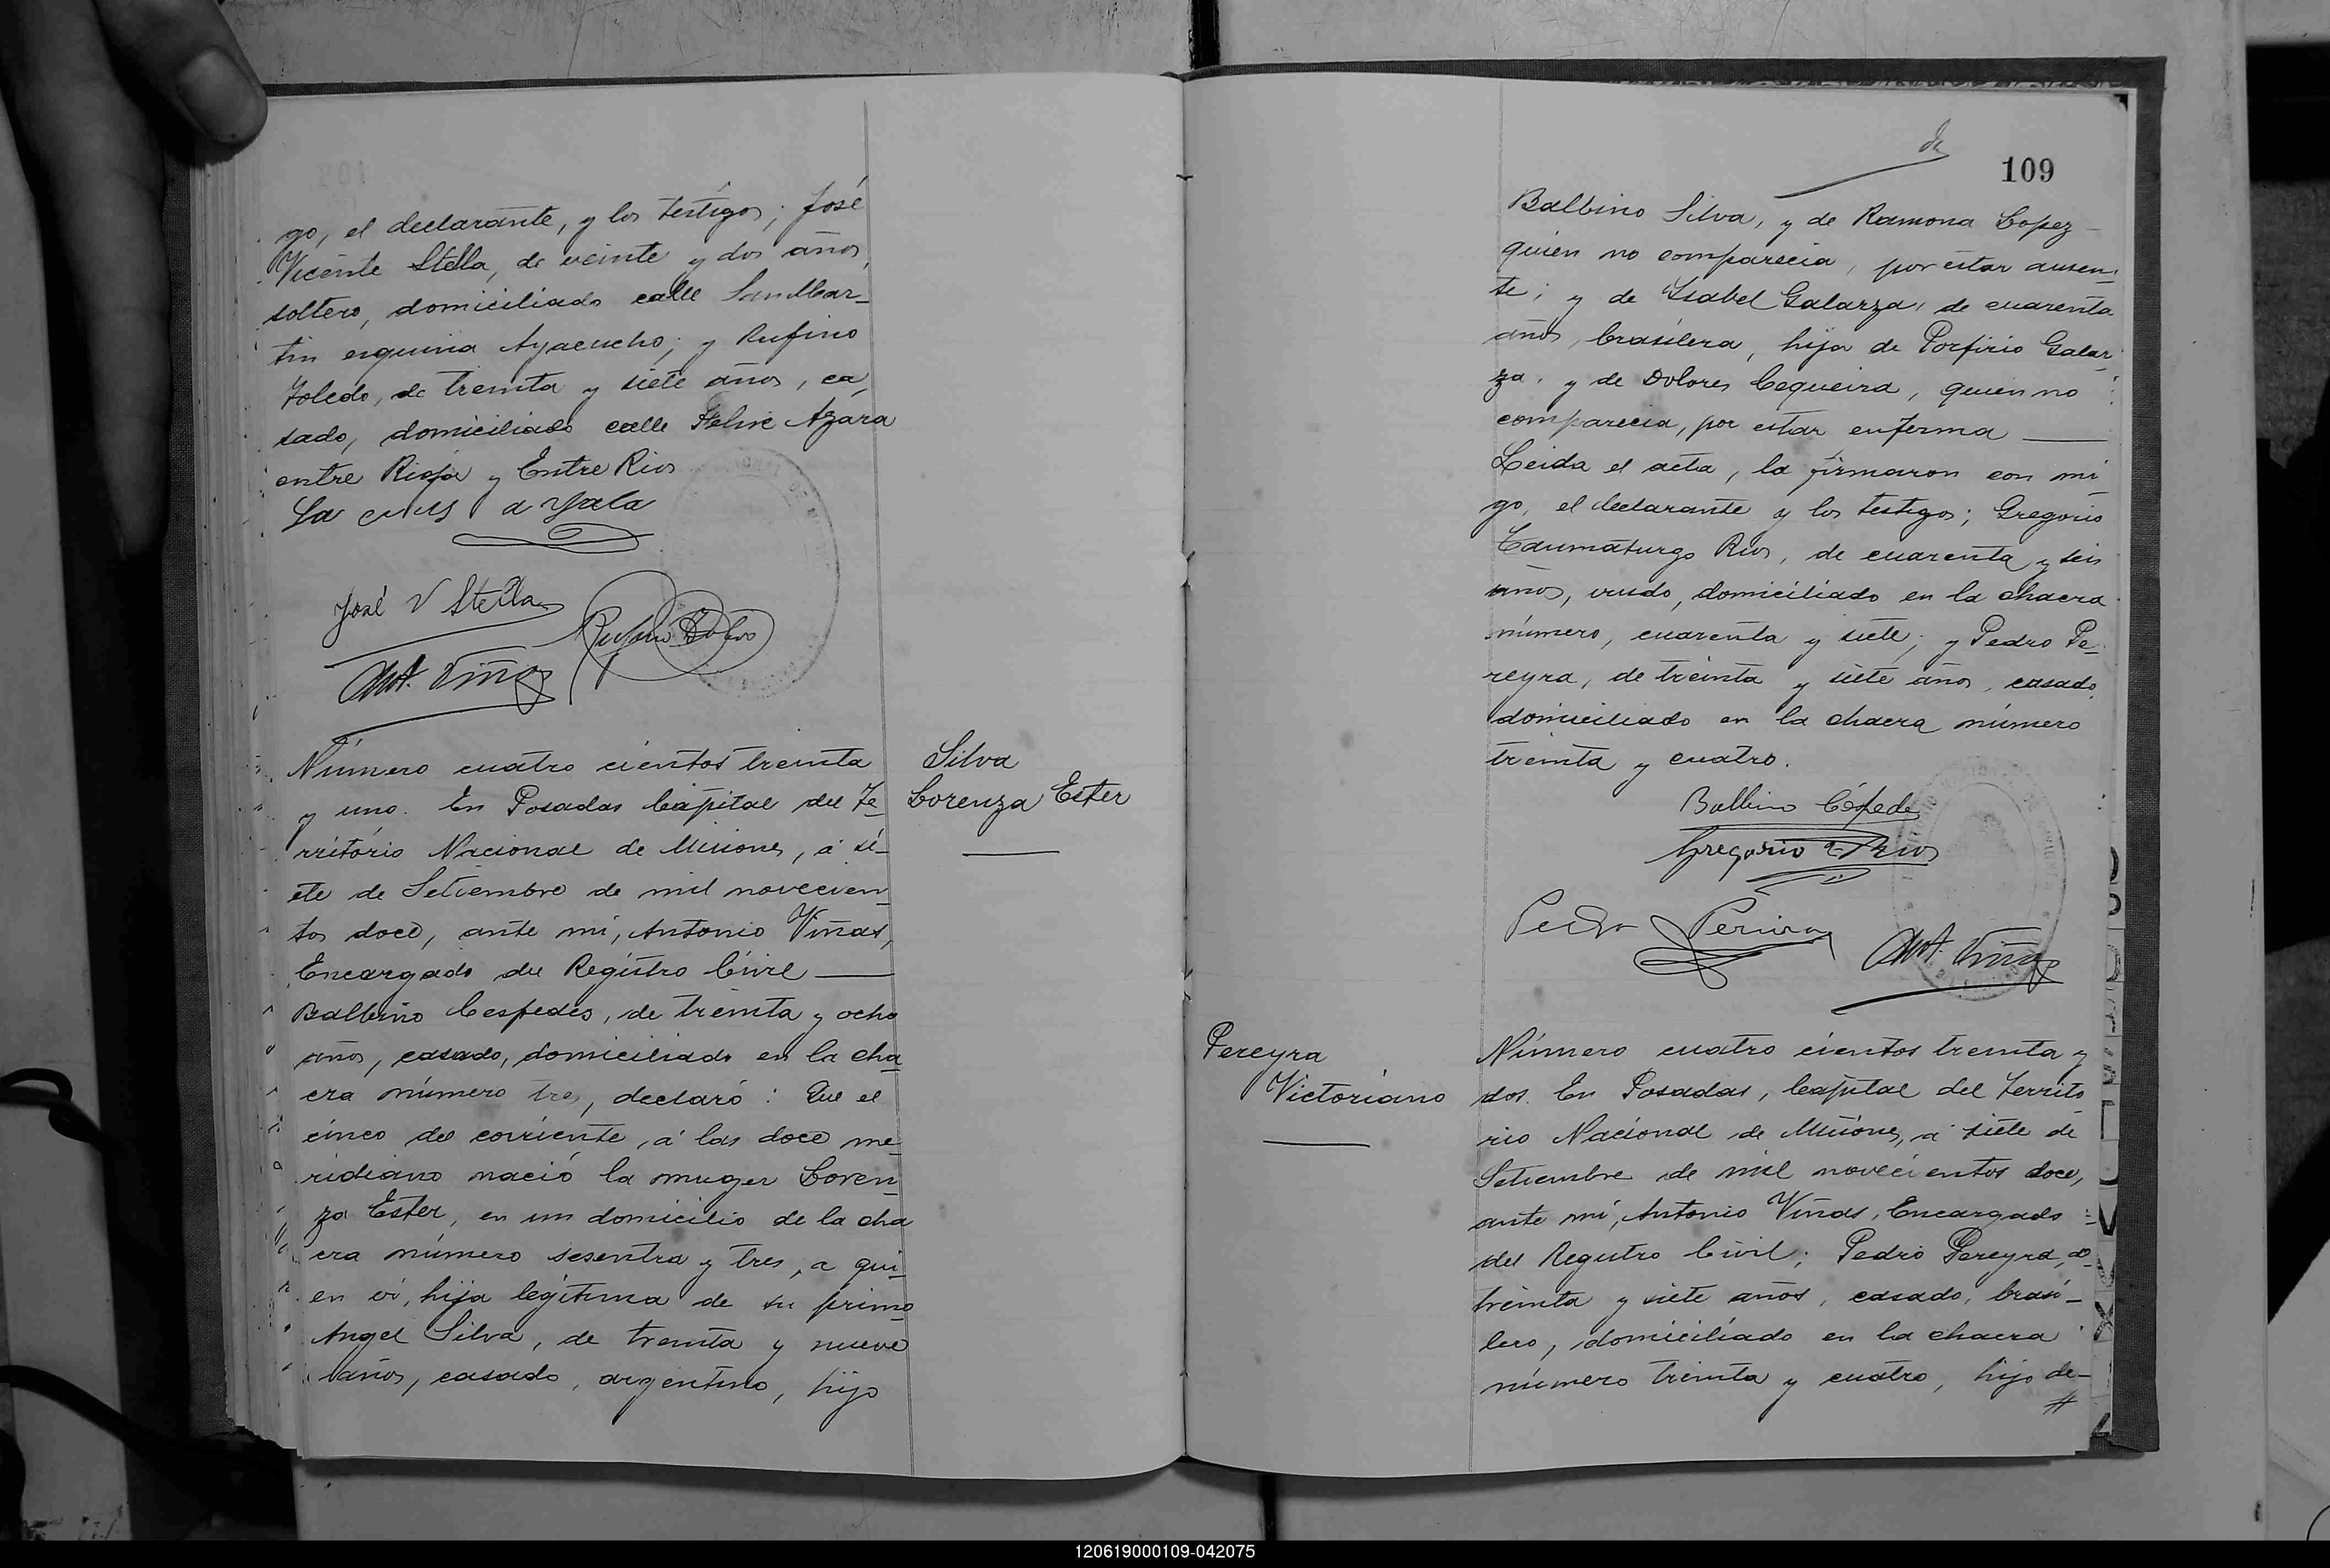 go, el declarante, y los testigos; José
Vicente Stella, de veinte y dos años,
soltero, domiciliado calle San Mar-
tin esquina Ayacucho; y Rufino
Toledo, de treinta y siete años, ca-
sado, domiciliado calle Felix Azara
entre Rioja y Entre Rios
ayala
José V Stella
Rufino Toledo
Ant. Viñas
Número cuatro cientos treinta
y uno. En Posadas Capital del Te-
rritório Nacional de Misiones, á si-
ete de Setiembre de mil novecien-
tos doce, ante mi, Antonio Viñas,
Encargado del Registro Civil
Balbino Cespedes, de treinta y ocho
años, casado, domiciliado en la cha-
cra número tres, declaró: Que el
cinco del corriente, á las doce me-
ridiano nació la muger Loren-
za Ester, en un domicilio de la cha
cra número sesentra y tres, a qui-
en ví, hija legítima de su primo
Angel Silva, de treinta y nueve
años, casado, argentino, hijo
Silva
Lorenza Ester
de
109
Balbino Silva, y de Ramona Lopez
quien no comparecia, por estar ausen-
te; y de Ysabel Galarza, de cuarenta
años, brasilera, hija de Porfirio Galar-
za, y de Dolores Cequeira, quien no
comparecia, por estar enferma
Leida el acta, la firmaron con mi
go, el declarante y los testigos; Gregorio
Taumaturgo Rios, de cuarenta y seis
años, viudo, domiciliado en la chacra
número, cuarenta y siete; y Pedro Pe-
reyra, de treinta y siete años, casado,
domiciliado en la chacra número
treinta y cuatro.
Balbino Céspede
Gregorio T Rios
Pedro Pereira
Ant. Viñas
Pereyra
Victoriano
Número cuatro cientos treinta y
dos. En Posadas, Capital del Territo
rio Nacional de Misiones, a siete de
Setiembre de mil novecientos doce,
ante mi, Antonio Viñas, Encargado
del Registro Civil; Pedro Pereyra, de
treinta y siete años, casado, brasi-
lero, domiciliado en la chacra
número treinta y cuatro, hijo de-
#
120619000109-042075